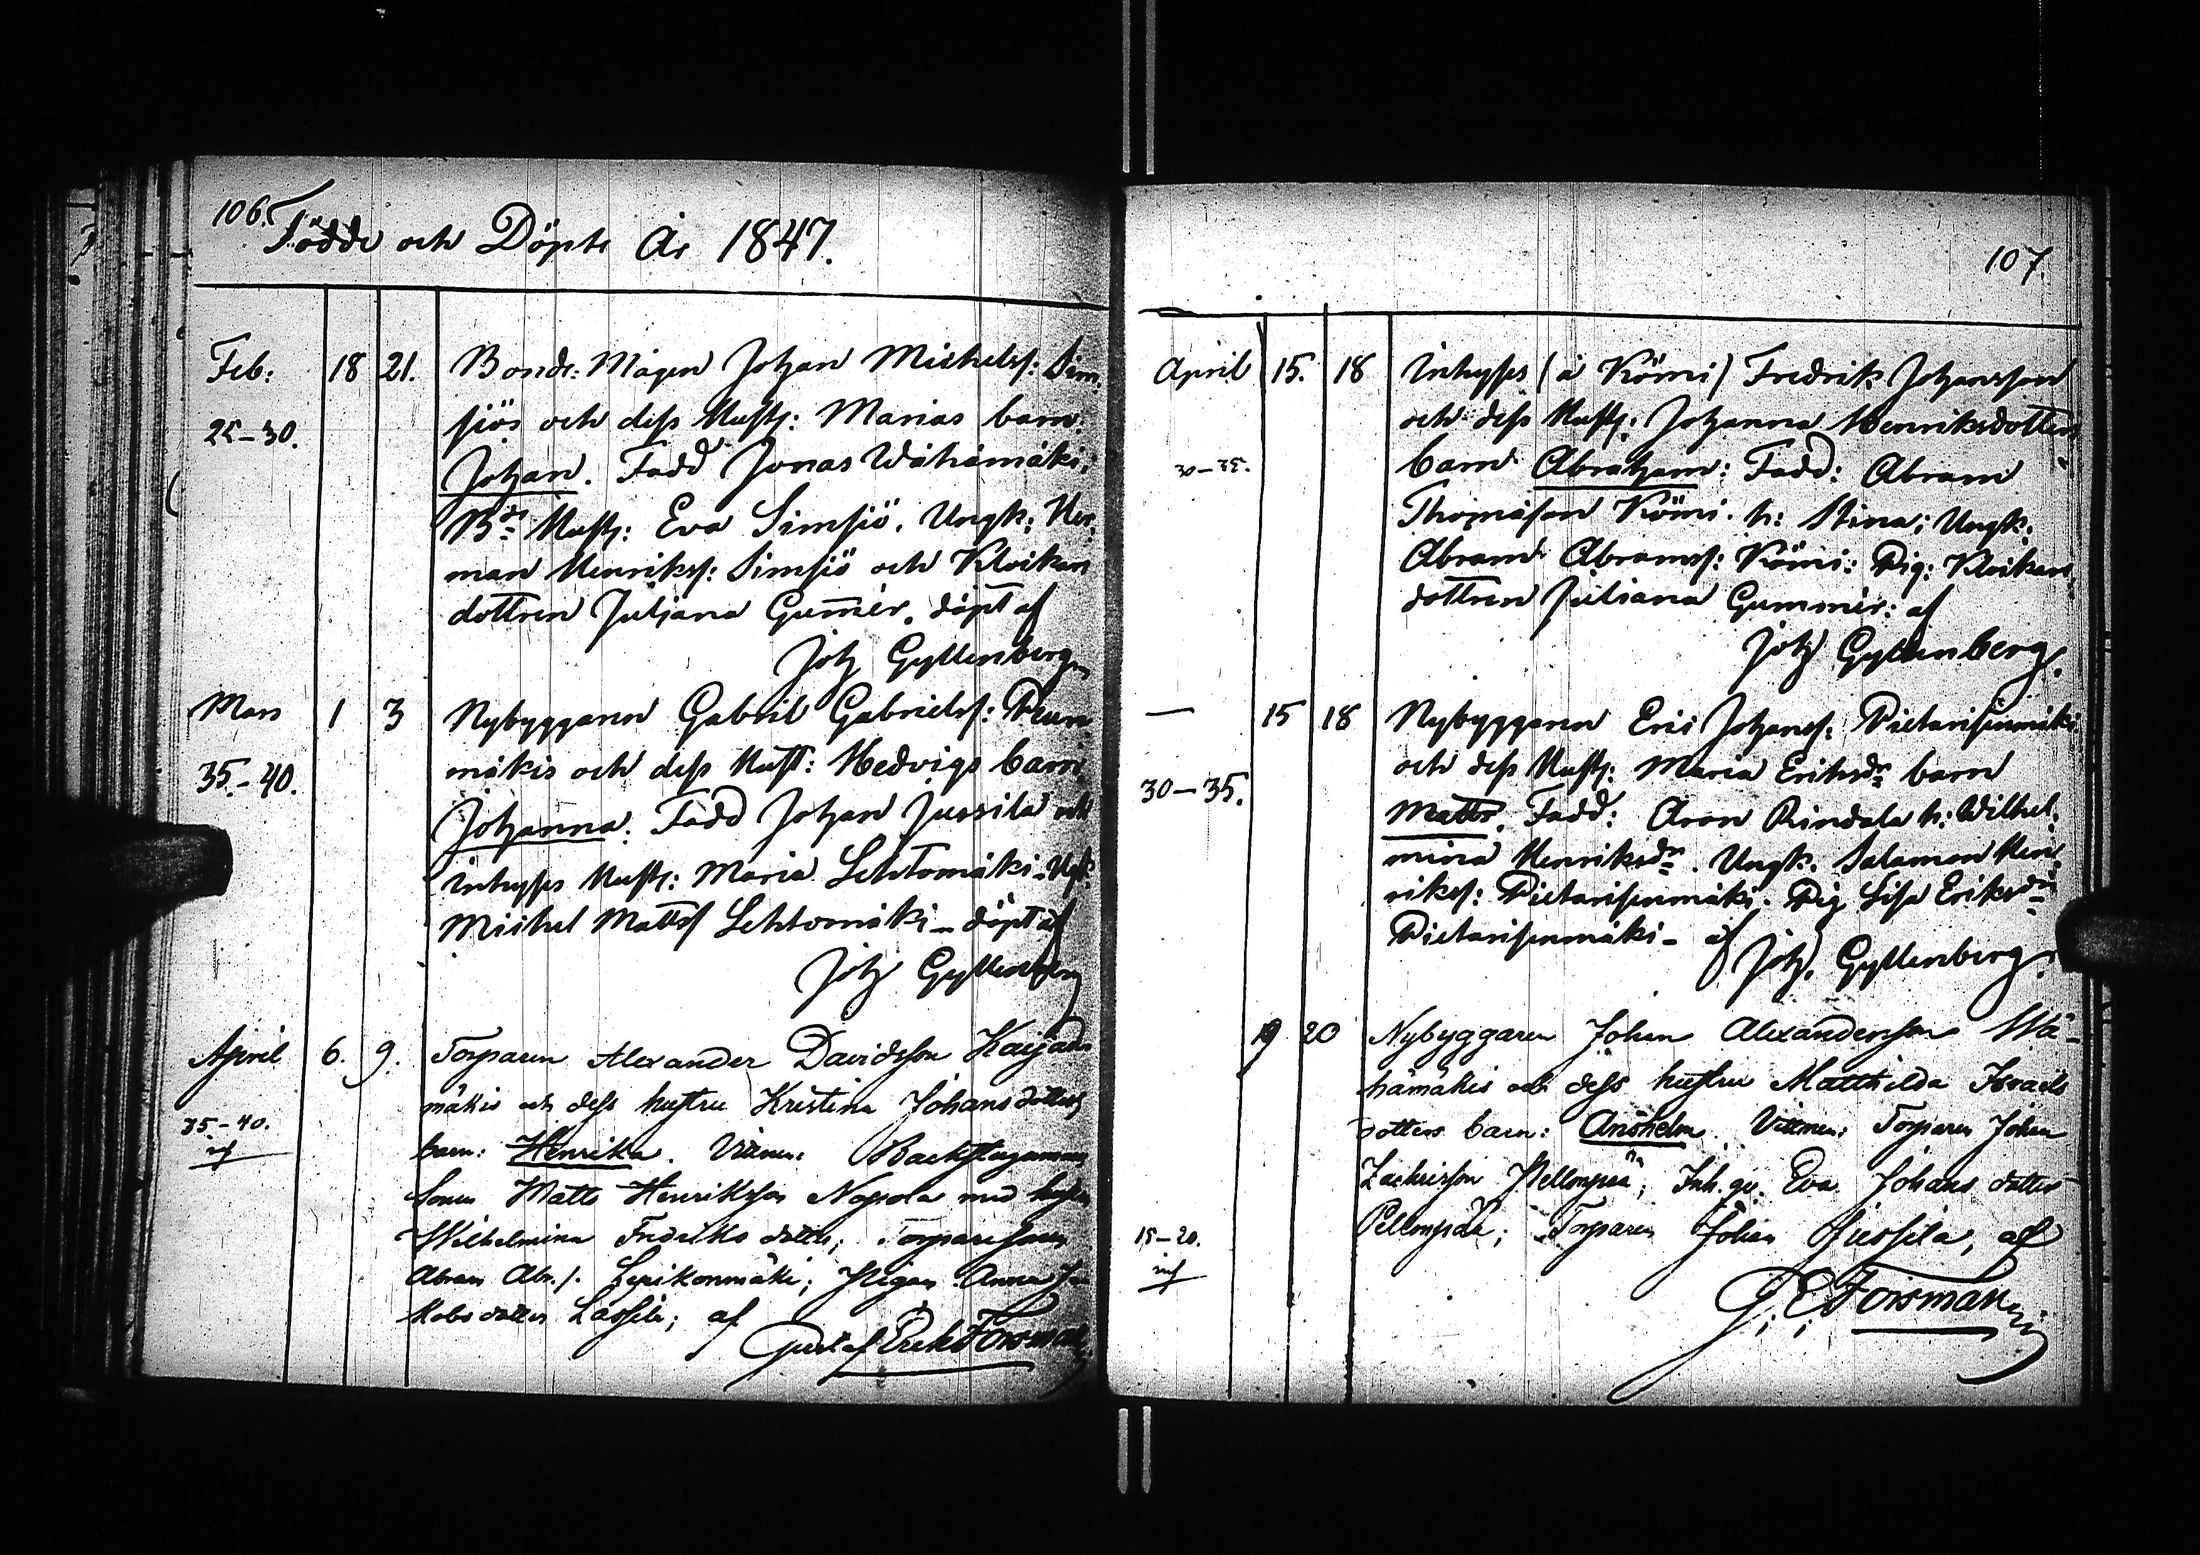 106. Födde och Döpte År 1847.
Feb: 18 21. Bonde: Mågen Johan Michelss: Sim,
25-30. sjös och dess Hust: Marias barn:
Johan. Fadd Jonas Wähämäki;
Bde Hust: Eva Simsiö. Ungk: Her,
man Henrikss: Simsiö och Klockare
dottren Juliana Gum̄ér. döpt af
Joh Gyllenberg
Mars 1 3 Nybyggaren Gabriel Gabrielss:
35-40. mäkis och dess Hust: Hedvigs barn
Johanna. Fadd Johan Jussila och
Inhyses Hust: Maria Lehtomäki
Michel Matss Lehtomäki döpt af
Joh Gyllenberg
April 6. 9. Torparen Alexander Davidsson
35-40. mäkis och dess hustru Kristina Johansdotters
barn: Henrika. Vittnen:
Sonen Matts Henriksson med hustru
Wilhelmina Fredriks dotter; Torparesonen
Abram Abr.s. Lepikonmäki; Pigan Anna Ja
kobsdotter Lassila; af
Gustaf Erik Forsman
107
April 15. 18 Inhyses (å Römi) Fredrik Johansson
och dess Hust: Johanna Henriksdotters
30-35. barn Abraham: Fadd: Abram
Thomasson Römi. h: Stina; Ungk:
Abram Abramss: Römi: Pig: Klockare
dottren Juliana Gummér: af
Joh Gyllenberg.
— 15 18 Nybyggaren Eric Johanss: Pietarisenmäki
och dess Hust: Maria Eriksdr barn
30-35. Matts. Fadd: Aron Rindala h: Wilhel,
mina Henriksdr. Ungk. Salamon Hen
rikss: Pietarisenmäki. Pig Lisa Eriksdr
Pietarisenmäki - af
Joh. Gyllenberg.
19 20 Nybyggaren Johan Alexandersson Wä-
hämäkis och dess hustru Matthilda Israels
dotters barn: Anshelm. Vittnen: Torparen Johan
Zachrisson Pellonpää; Inh. Eva Johans dotter
15-20. Pellonpää; Torparen Johan Jussila, af
G. E. Forsman